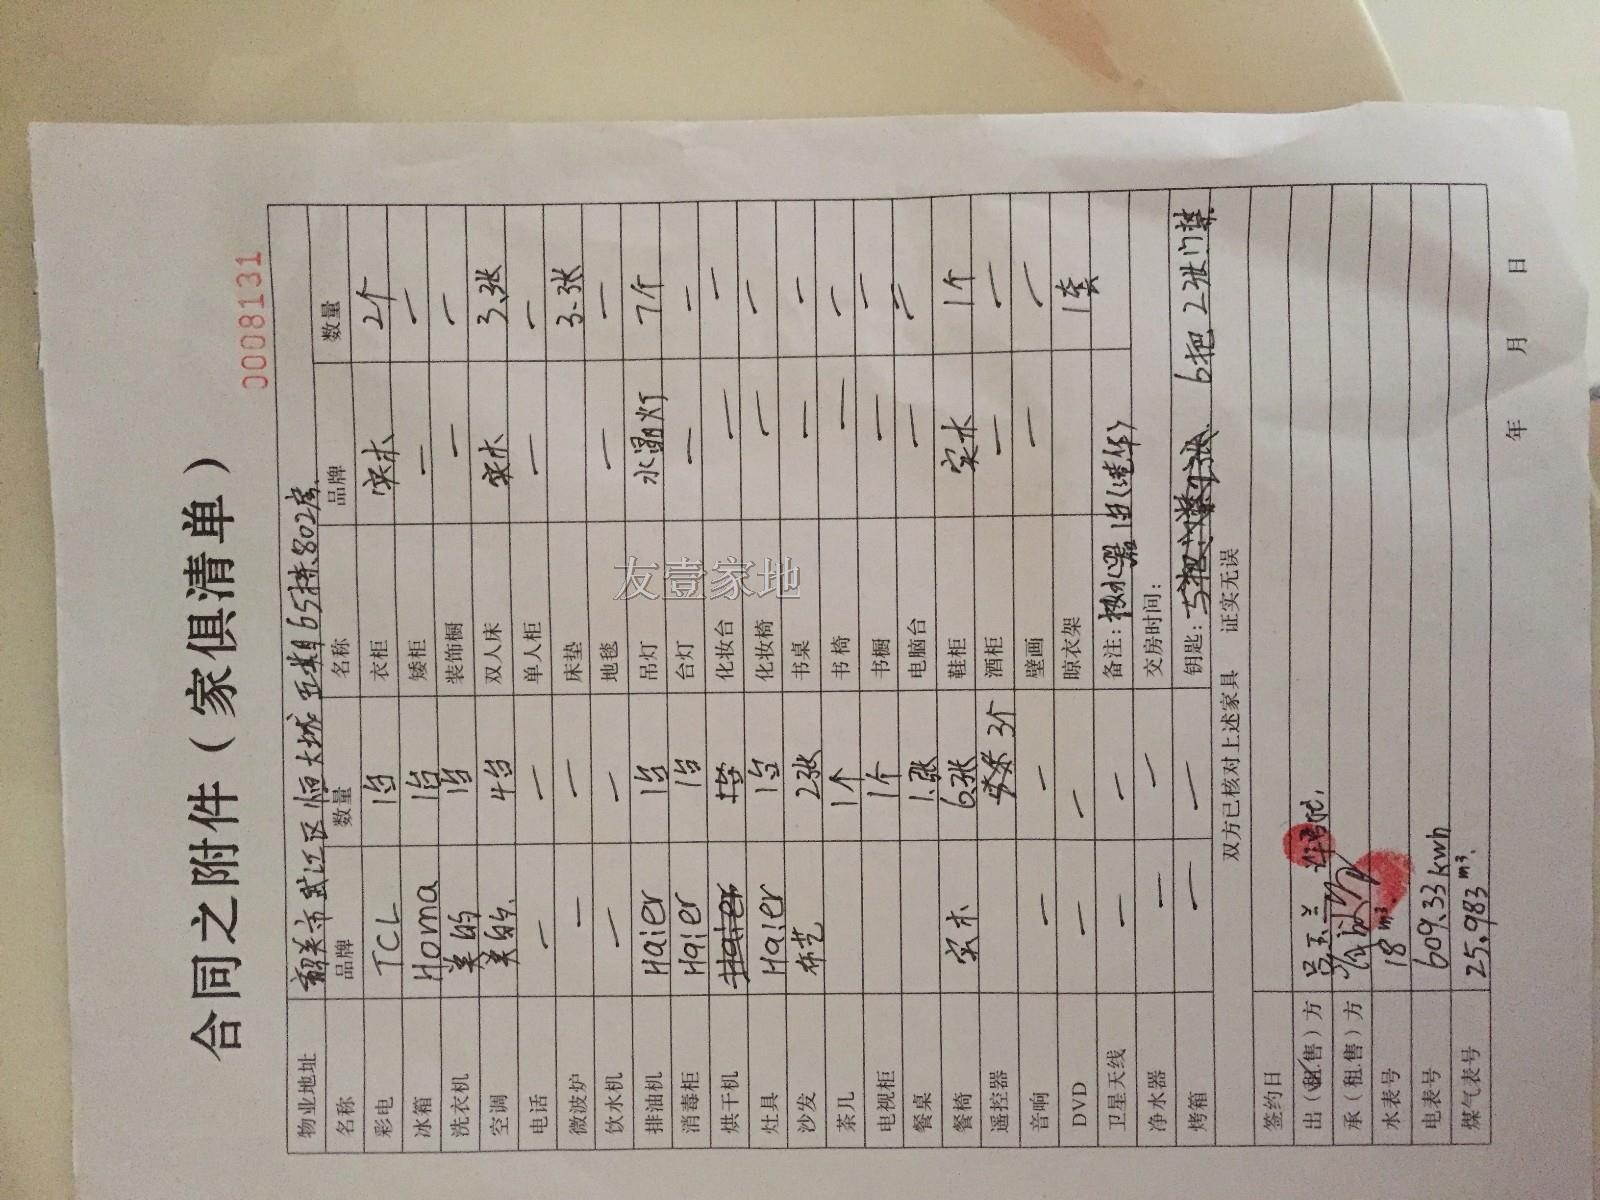 合同之附件（家俱清单）
0008131
物业地址 韶关市武江区恒大城 65栋802房
名称 品牌 数量 名称 品牌 数量
彩电 TCL 1台 衣柜 实木 2个
冰箱 Homa 1台 矮柜 — —
洗衣机 美的 1台 装饰橱 — —
空调 美的 4台 双人床 实木 3张
电话 — — 单人柜 — —
微波炉 — — 床垫 3张
饮水机 — — 地毯 — —
排油机 Haier 1台 吊灯 水晶灯 7个
消毒柜 Haier 1台 台灯 — —
烘干机 Haier 1台 化妆台 — —
灶具 Haier 1台 化妆椅 — —
沙发 布艺 2张 书桌 — —
茶几 1个 书椅 — —
电视柜 1个 书橱 — —
餐桌 1张 电脑台 — —
餐椅 实木 6张 鞋柜 实木 1个
遥控器 3个 酒柜 — —
音响 — — 壁画 — —
DVD — 晾衣架 1套
卫星天线 — — 备注： 热水器1台
净水器 — — 交房时间：
烤箱 — — 钥匙： 6把 2张门禁
双方已核对上述家具 证实无误
签约日
出（租.售）方 吕玉兰
承（租.售）方
水表号 18 m³.
电表号 609.33kwh
煤气表号 25.983 m³.
年 月 日
友壹家地